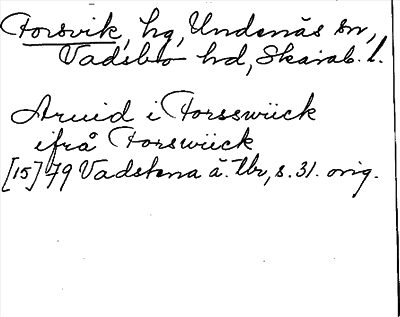 Forsvik, hg, Undenäs sn,
Vadsbo hd, Skarab. l.
Aruid i Forsswiick
ifrå Forswiick
[15]79 Vadstena ä. tbr, s. 31. orig.